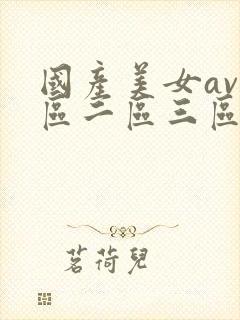 國產美女av
區二區三區
茗荷兒